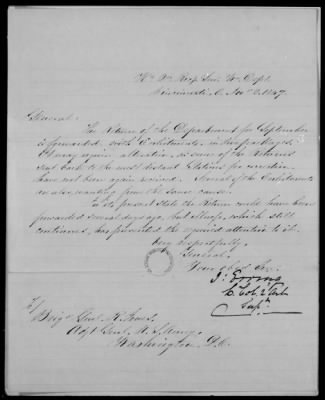 Hd. Qrs. Recg. Serv. W. Dept.
Cincinnati, O. Nov. 2. 1847
General:
The Return of the Department for September
is forwarded, with Enlistments, in two packages.
attention, as some of the Returns
sent back to the most distant Stations for correction
have not been again received. Several of the Enlistments
are also wanting from the same cause.
In its present state the Return would have been
forwarded several days ago, but illness, which still
continues, has prevented the required attention to it.
Very respectfully,
General,
Your obt. Ser.
Supt.
To
Brig. Genl. R. Jones,
Adjt. Genl. U. S. Army,
Washington, D.C.